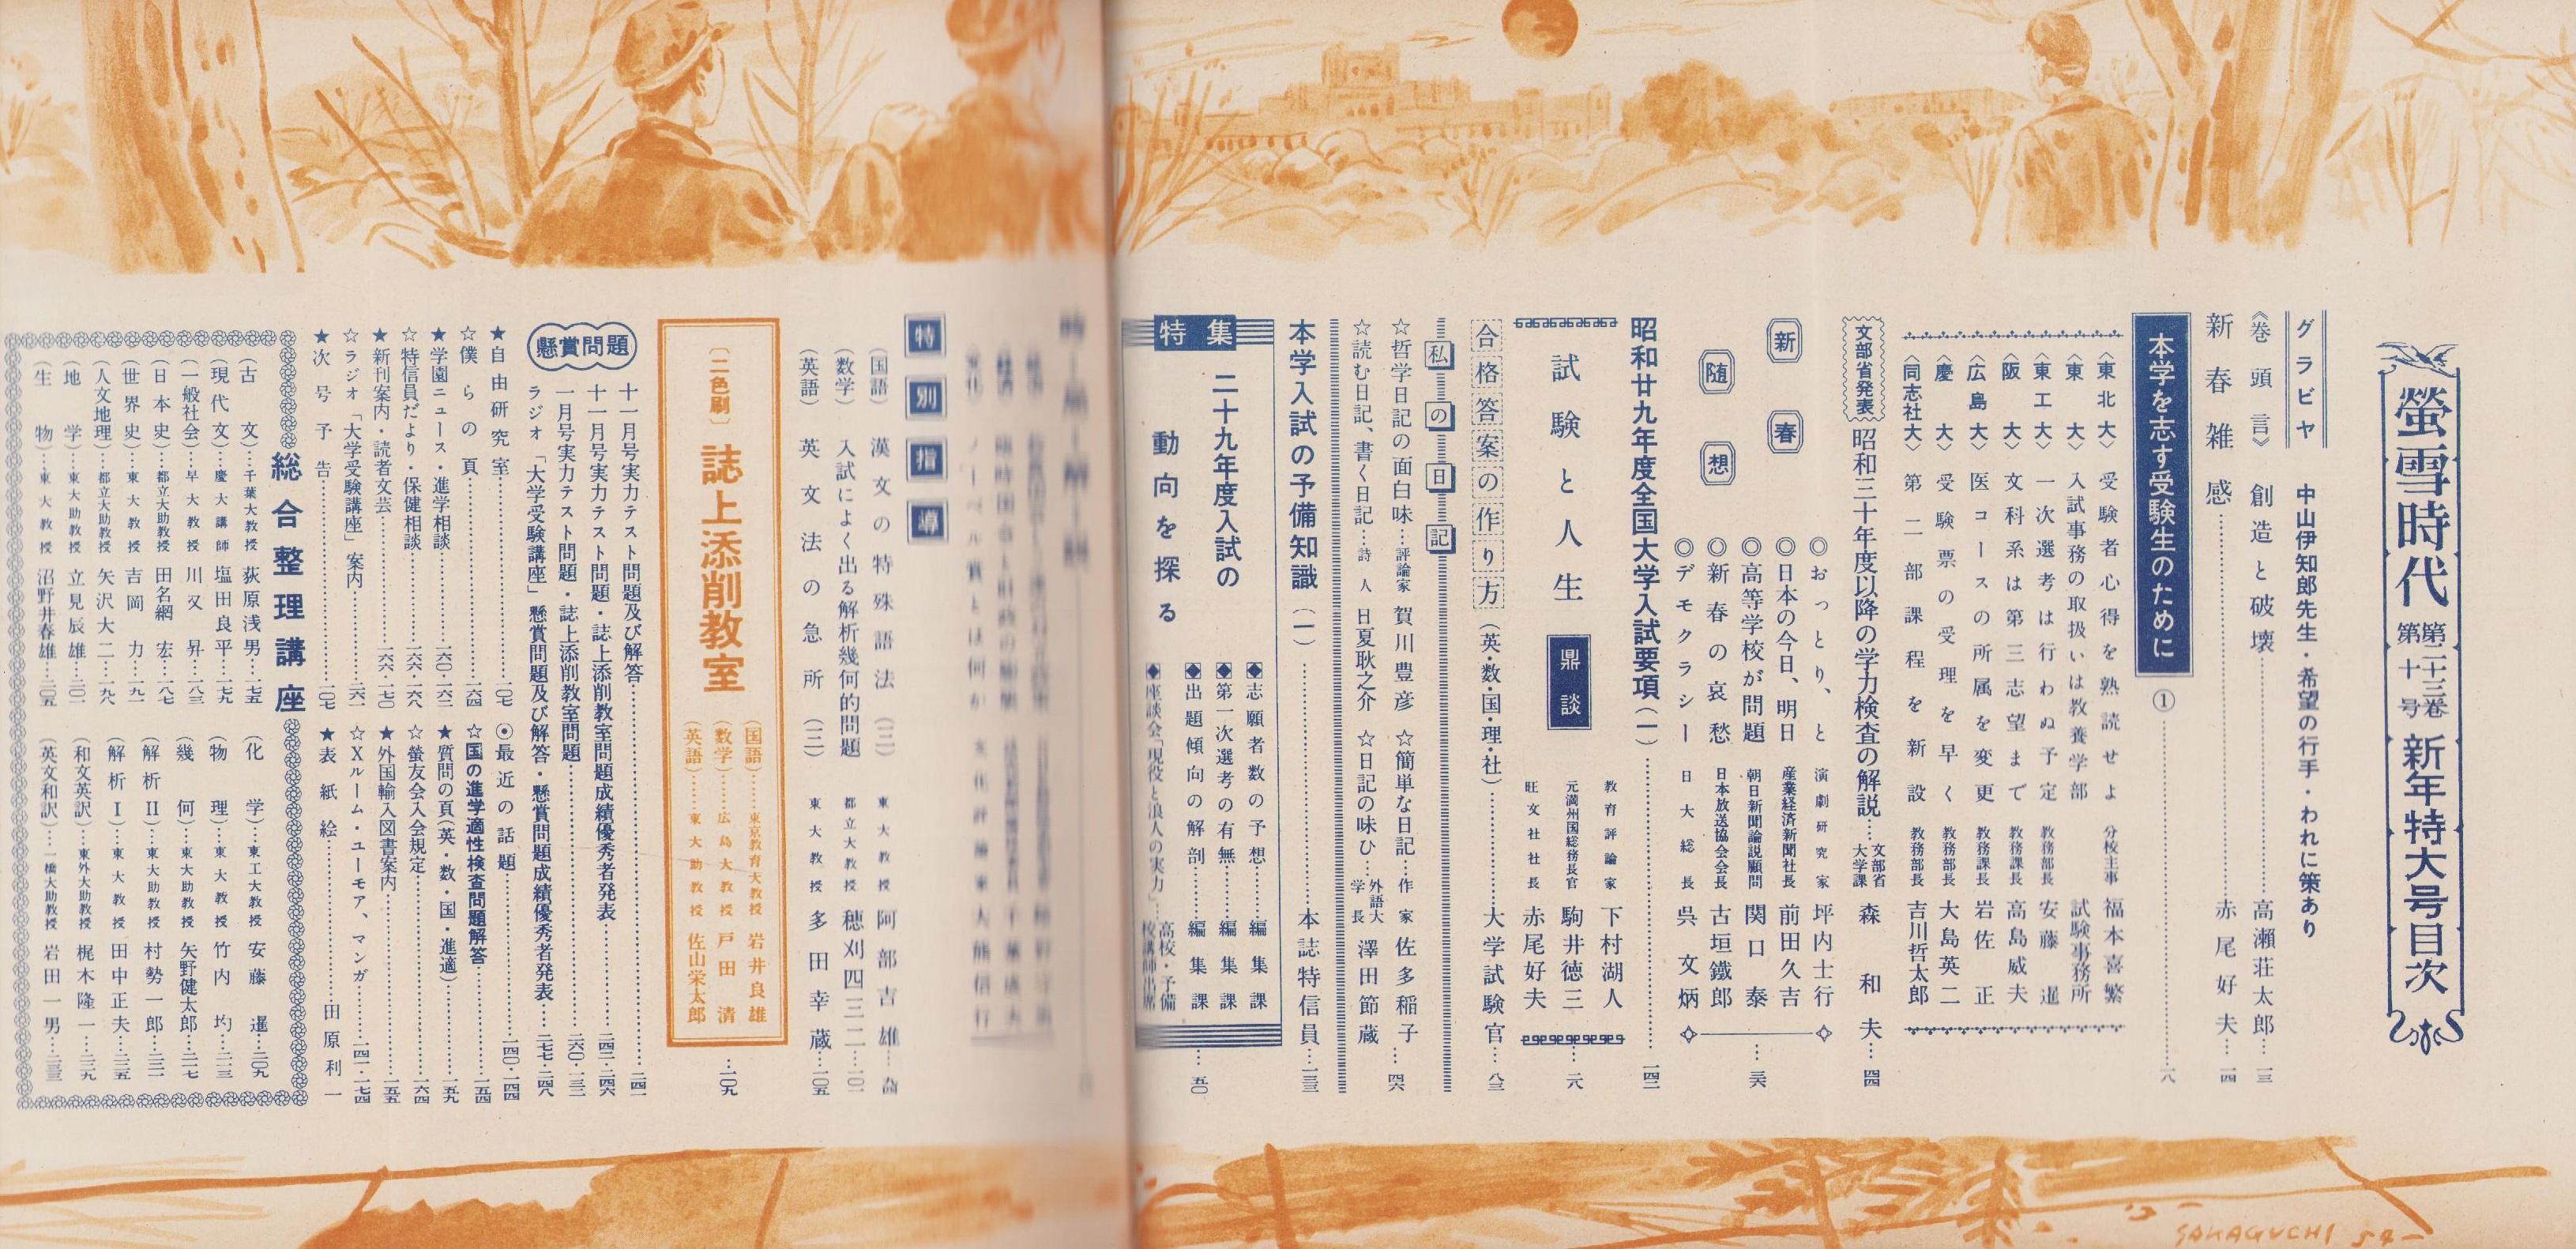 螢雪時代 第二十三巻 第十号 新年特大号目次
グラビヤ 中山伊知郎先生・希望の行手・われに策あり
《巻頭言》 創造と破壊…… 高瀬荘太郎…一三
新春雑感…… 赤尾好夫…一四
本学を志す受験生のために ①……一八
〈東北大〉 受験者心得を熟読せよ 分校主事 福本喜繁
〈東大〉 入試事務の取扱いは教養学部 試験事務所
〈東工大〉 一次選考は行わぬ予定 教務部長 安藤暹
〈阪大〉 文科系は第三志望まで 教務課長 高島威夫
〈広島大〉 医コースの所属を変更 教務課長 岩佐正
〈慶大〉 受験票の受理を早く 教務部長 大島英二
〈同志社大〉 第二部課程を新設 教務部長 吉川哲太郎
文部省発表 昭和三十年度以降の学力検査の解説…… 文部省大学課 森和夫…四四
新春随想
◎おっとり、と 演劇研究家 坪内士行
◎日本の今日、明日 産業経済新聞社長 前田久吉
◎高等学校が問題 朝日新聞論説顧問 関口泰
◎新春の哀愁 日本放送協会会長 古垣鐵郎
◎デモクラシー 日大総長 呉文炳
……三六
昭和廿九年度全国大学入試要項(一)……一四二
試験と人生 鼎談
教育評論家 下村湖人
元満州国総務長官 駒井徳三
旺文社社長 赤尾好夫
……二八
合格答案の作り方 (英・数・国・理・社)…… 大学試験官…八三
私の日記
☆哲学日記の面白味… 評論家 賀川豊彦 ☆簡単な日記… 作家 佐多稲子
☆読む日記、書く日記… 詩人 日夏耿之介 ☆日記の味ひ… 外語大学長 澤田節蔵
…四六
本学入試の予備知識(一)…… 本誌特信員…一三三
特集
二十九年度入試の
動向を探る
◆志願者数の予想…… 編集課
◆第一次選考の有無…… 編集課
◆出題傾向の解剖…… 編集課
◆座談会「現役と浪人の実力」… 高校・予備校講師出席
…五〇
特別指導
(国語) 漢文の特殊語法(三) 東大教授 阿部吉雄…
(数学) 入試によく出る解析幾何的問題 都立大教授 穂刈四三二…一〇二
(英語) 英文法の急所(三) 東大教授 多田幸蔵…一〇五
〔二色刷〕 誌上添削教室
(国語)…… 東京教育大教授 岩井良雄
(数学)…… 広島大教授 戸田清
(英語)…… 東大助教授 佐山栄太郎
…一〇九
懸賞問題
十一月号実力テスト問題及び解答……二四二
十一月号実力テスト問題・誌上添削教室問題成績優秀者発表……二四二・二四六
一月号実力テスト問題・誌上添削教室問題……二六〇・一三二
ラジオ「大学受験講座」懸賞問題及び解答・懸賞問題成績優秀者発表…二七七・二四八
★自由研究室……二〇七
☆僕らの頁……一六四
★学園ニュース・進学相談……一六〇・一六二
☆特信員だより・保健相談……一六六・一六八
★新刊案内・読者文芸……一六六・一七〇
☆ラジオ「大学受験講座」案内……二六一
★次号予告……二〇七
◉最近の話題……一四〇・一四四
☆国の進学適性検査問題解答……一五四
★質問の頁(英・数・国・進適)……一五九
☆螢友会入会規定……二六四
★外国輸入図書案内……一五五
☆Xルーム・ユーモア、マンガ……一四一・一七四
★表紙絵…… 田原利一
総合整理講座
(古文)… 千葉大教授 荻原浅男…一七五
(現代文)… 慶大講師 塩田良平…一七九
(一般社会)… 早大教授 川又昇…一八三
(日本史)… 都立大助教授 田名網宏…一八七
(世界史)… 東大教授 吉岡力…一九一
(人文地理)… 都立大助教授 矢沢大二…一九六
(地学)… 東大助教授 立見辰雄…二〇一
(生物)… 東大教授 沼野井春雄…二〇五
(化学)… 東工大教授 安藤暹…二〇九
(物理)… 東大教授 竹内均…二一三
(幾何)… 東大助教授 矢野健太郎…二一七
(解析II)… 東大助教授 村勢一郎…二二一
(解析I)… 東大教授 田中正夫…二二五
(和文英訳)… 東外大助教授 梶木隆一…二二九
(英文和訳)… 一橋大助教授 岩田一男…二三三
SAKAGUCHI 54-